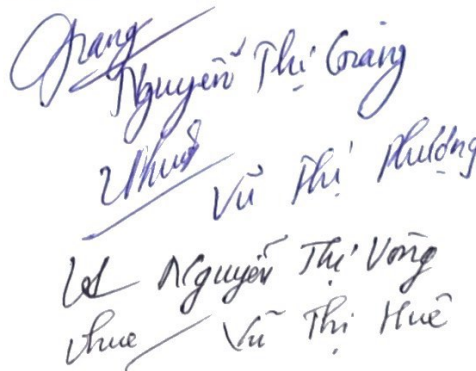 Giang
Nguyễn Thị Giang
Vũ Thị Phượng
Nguyễn Thị Vòng
Vũ Thị Huê